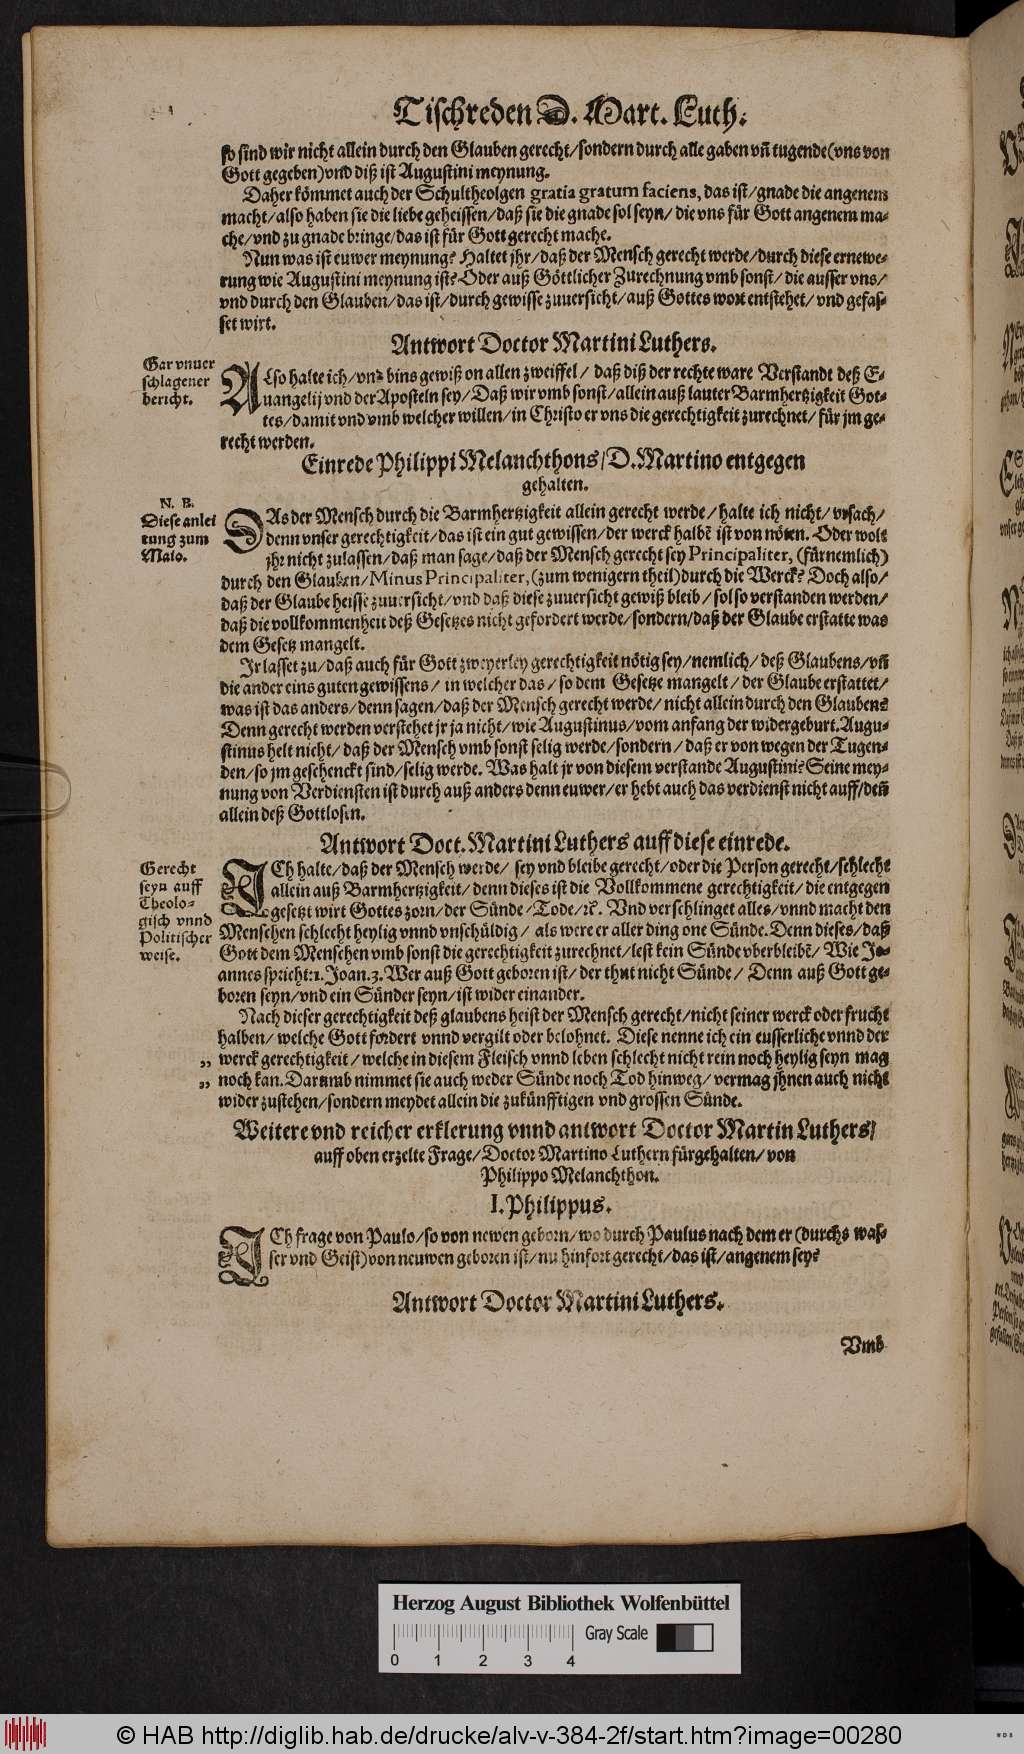 Tischreden D. Mart. Luth.
so sind wir nicht allein durch den Glauben gerecht/sondern durch alle gaben vñ tugende (vns von
Gott gegeben) vnd diß ist Augustini meynung.
Daher kömmet auch der Schultheolgen gratia gratum faciens, das ist/gnade die angenem
macht/also haben sie die liebe geheissen/daß sie die gnade sol seyn/die vns für Gott angenem ma-
che/vnd zu gnade bringe/das ist für Gott gerecht mache.
Nun was ist euwer meynung? Haltet jhr/daß der Mensch gerecht werde/durch diese ernewe-
rung wie Augustini meynung ist? Oder auß Göttlicher Zurechnung vmb sonst/die ausser vns/
vnd durch den Glauben/das ist/durch gewisse zuuersicht/auß Gottes wort entstehet/vnd gefas-
set wirt.
Antwort Doctor Martini Luthers.
Gar vnuer
schlagener
bericht.
Also halte ich/vnd bins gewiß on allen zweiffel/ daß diß der rechte ware Verstandt deß E-
uangelij vnd der Aposteln sey/Daß wir vmb sonst/allein auß lauter Barmhertzigkeit Got-
tes/damit vnd vmb welcher willen/in Christo er vns die gerechtigkeit zurechnet/für jm ge-
recht werden.
Einrede Philippi Melanchthons/D. Martino entgegen
gehalten.
N. B.
Diese anlei
tung zum
Malo.
DAs der Mensch durch die Barmhertzigkeit allein gerecht werde/halte ich nicht/vrsach/
denn vnser gerechtigkeit/das ist ein gut gewissen/der werck halbē ist von nöten. Oder wolt
jhr nicht zulassen/daß man sage/daß der Mensch gerecht sey Principaliter, (fürnemlich)
durch den Glauben/Minus Principaliter, (zum wenigern theil) durch die Werck? Doch also/
daß der Glaube heisse zuuersicht/vnd daß diese zuuersicht gewiß bleib/sol so verstanden werden/
daß die vollkommenheit deß Gesetzes nicht gefordert werde/sondern/daß der Glaube erstatte was
dem Gesetz mangelt.
Ir lasset zu/daß auch für Gott zweyerley gerechtigkeit nötig sey/nemlich/deß Glaubens/vñ
die ander eins guten gewissens/ in welcher das/so dem Gesetze mangelt/der Glaube erstattet/
was ist das anders/denn sagen/daß der Mensch gerecht werde/nicht allein durch den Glauben?
Denn gerecht werden verstehet jr ja nicht/wie Augustinus/vom anfang der widergeburt. Augu-
stinus helt nicht/daß der Mensch vmb sonst selig werde/sondern/daß er von wegen der Tugen-
den/so jm geschenckt sind/selig werde. Was halt jr von diesem verstande Augustini? Seine mey-
nung von Verdiensten ist durch auß anders denn euwer/er hebt auch das verdienst nicht auff/deñ
allein deß Gottlosen.
Antwort Doct. Martini Luthers auff diese einrede.
Gerecht
seyn auff
Theolo-
gisch vnnd
Politischer
weise.
ICh halte/daß der Mensch werde/ sey vnd bleibe gerecht/oder die Person gerecht/schlecht
allein auß Barmhertzigkeit/denn dieses ist die Vollkommene gerechtigkeit/die entgegen
gesetzt wirt Gottes zorn/der Sünde/Tode/ꝛc. Vnd verschlinget alles/vnnd macht den
Menschen schlecht heylig vnnd vnschüldig/ als were er aller ding one Sünde. Denn dieses/daß
Gott dem Menschen vmb sonst die gerechtigkeit zurechnet/lest kein Sünde vberbleibē/Wie Jo-
annes spricht: 1. Joan. 3. Wer auß Gott geboren ist/der thut nicht Sünde/ Denn auß Gott ge-
boren seyn/vnd ein Sünder seyn/ist wider einander.
Nach dieser gerechtigkeit deß glaubens heist der Mensch gerecht/nicht seiner werck oder frucht
halben/welche Gott fordert vnnd vergilt oder belohnet. Diese nenne ich ein eusserliche vnnd der
„ werck gerechtigkeit/welche in diesem Fleisch vnnd leben schlecht nicht rein noch heylig seyn mag
„ noch kan. Darumb nimmet sie auch weder Sünde noch Tod hinweg/vermag jhnen auch nicht
wider zustehen/sondern meydet allein die zukünfftigen vnd grossen Sünde.
Weitere vnd reicher erklerung vnnd antwort Doctor Martin Luthers/
auff oben erzelte Frage/Doctor Martino Luthern fürgehalten/von
Philippo Melanchthon.
I. Philippus.
ICh frage von Paulo/so von newen geborn/wo durch Paulus nach dem er (durchs was-
ser vnd Geist) von neuwen geboren ist/nu hinfort gerecht/das ist/angenem sey?
Antwort Doctor Martini Luthers.
Vmb
Herzog August Bibliothek Wolfenbüttel
Gray Scale
0 1 2 3 4
© HAB http://diglib.hab.de/drucke/alv-v-384-2f/start.htm?image=00280